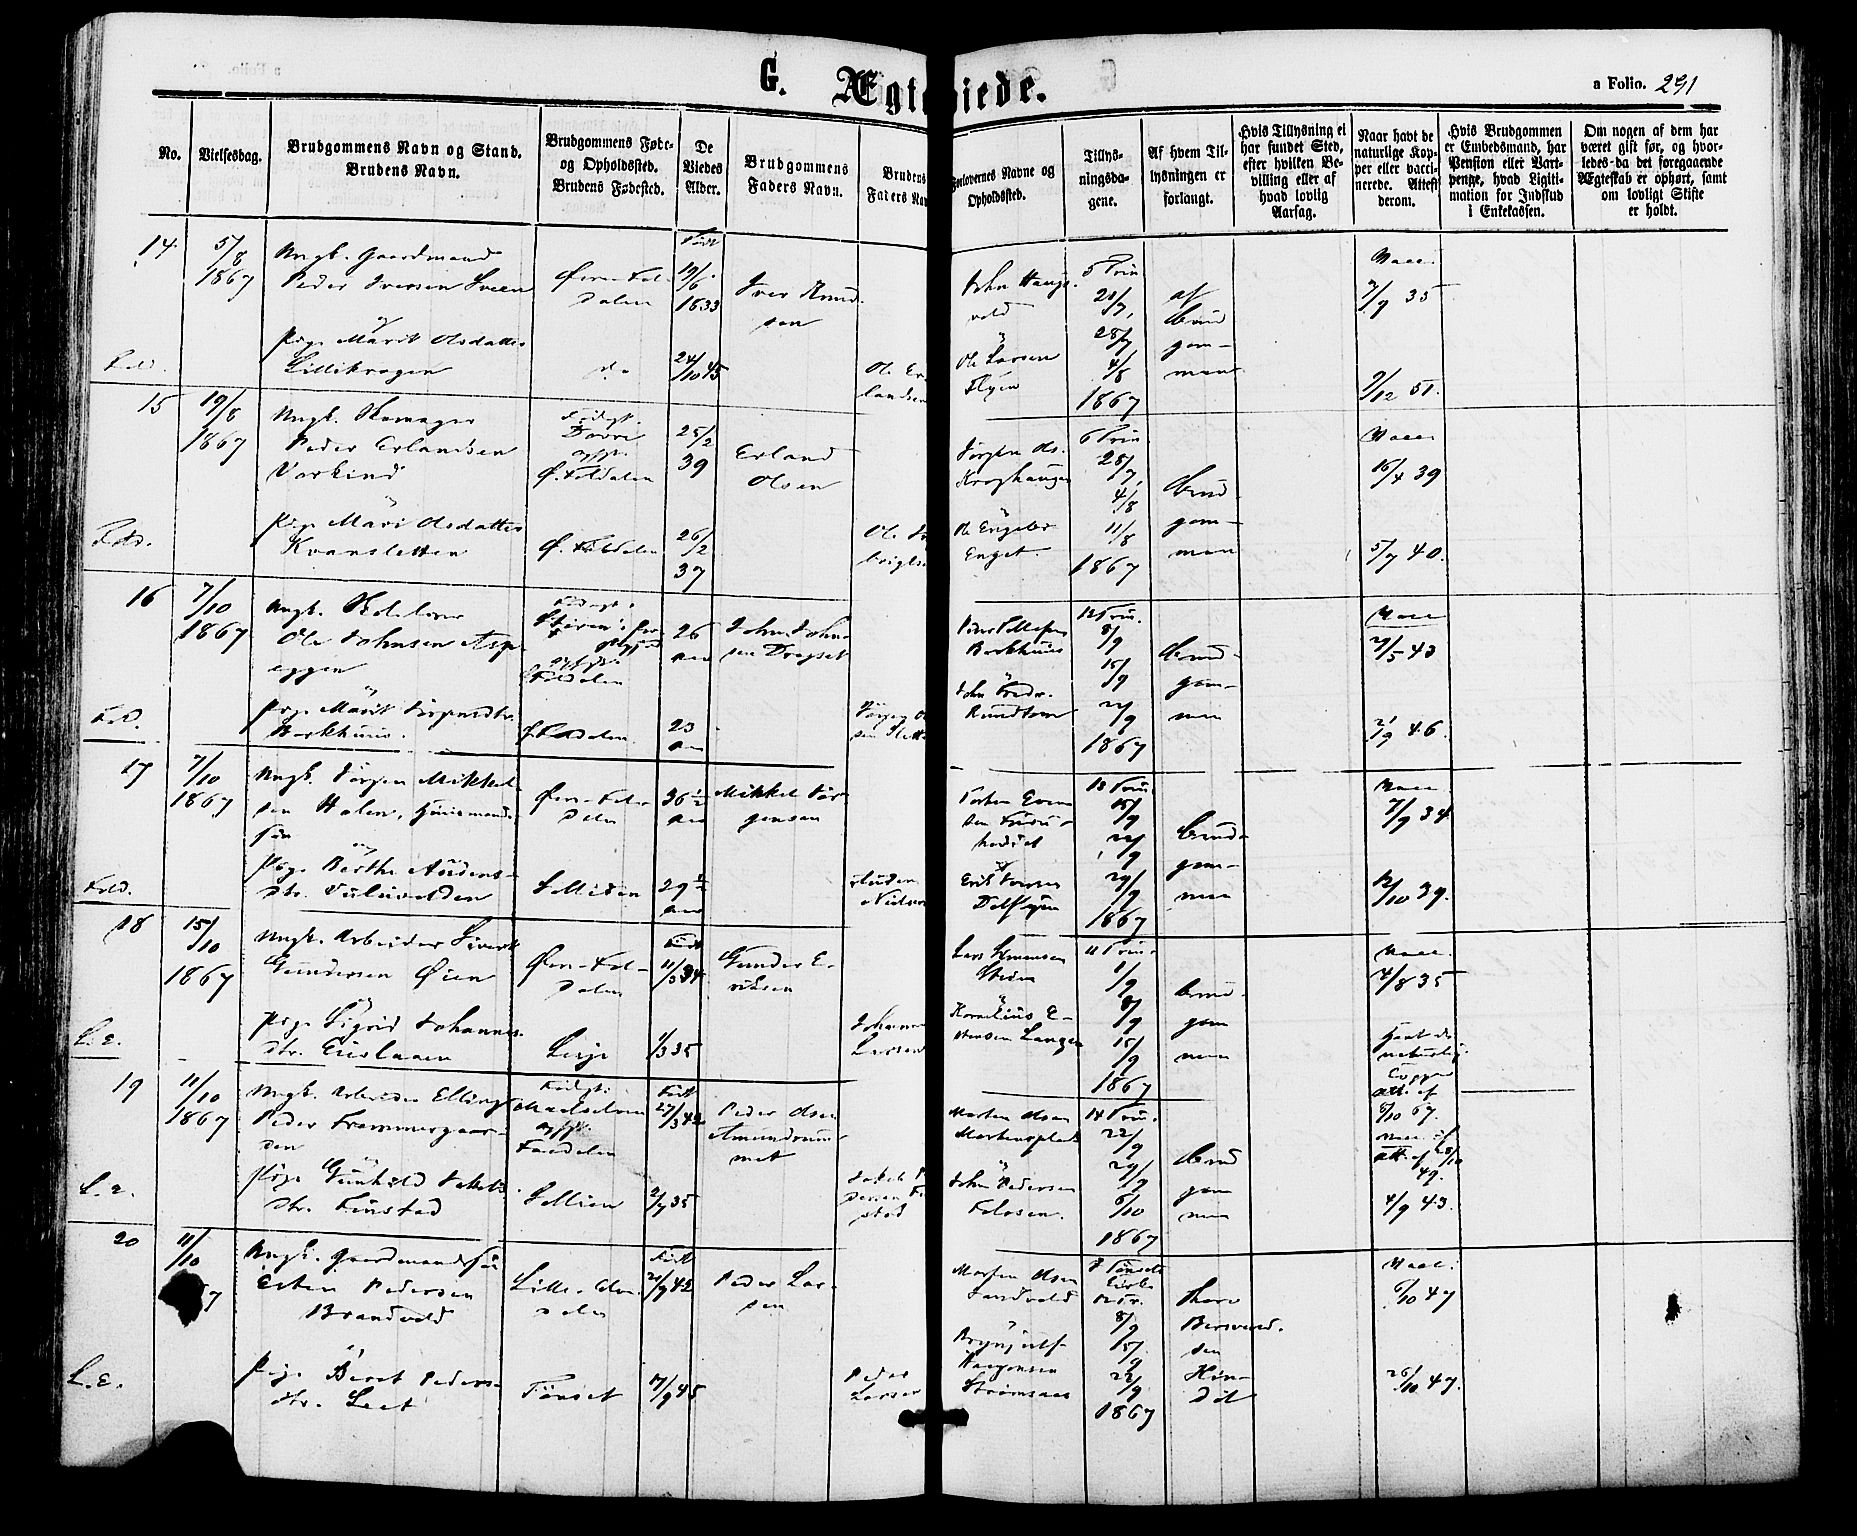 G. Ægteviede.
a Folio. 291
No.
Vielsesdag.
Brudgommens Navn og Stand.
Brudens Navn.
Brudgommens Føde-
og Opholdssted.
Brudens Fødested.
De
Viedes
Alder.
Brudgommens
Faders Navn.
Brudens
Faders Nav
Forlovernes Navne og
Opholdssted.
Tillys-
ningsda-
gene.
Af Hvem Til-
lysningen er
forlangt.
Hvis Tillysning ei
har fundet Sted,
efter hvilken Be-
villing eller af
hvad lovlig
Aarsag.
Naar havt de
naturlige Kop-
per eller vacci-
nerede. Attest
derom.
Hvis Brudgommen
er Embedsmand, har
Pension eller Vart-
penge, hvad Ligiti-
mation for Indskud
i Enkekassen.
Om nogen af dem har
været gift før, og hvor-
ledes da det foregaaende
Ægteskab er ophørt, samt
om lovligt Skifte
er holdt.
14
5/8
1867
Ungk. Gaardmand
Peder Iversen Sveen
og
Pige Marit Olsdatter
Lillikrogen
Fold.
Øvre-Fol-
dalen
do
Født
19/6
1833
24/10 45
Iver Knud-
sen
Ole Er
landsen
John Haugs-
vold
Ole Larsen
5 Trin
21/7,
28/7
4/8
1867
af
Brud
gom-
men
Vacc.
7/9 35
9/12 51.
15
19/8
1867
Ungk.
Peder Erlandsen
Vorkind
Pige Mari Olsdatter
Kvansletten
Fold.
Født
Dovre
Ø. Foldalen
Ø. Foldalen
25/2
39
26/2
37
Erland
Olsen
Jørgen Ols.
Kroghaugen
Ole Engebr.
Enget
6 Trin
28/7,
4/8
11/8
1867
Brud
gom-
men
Vacc
16/4 39
5/7 40.
16
7/10
1867
Ungk.
Ole Johnsen Asp
eggen
Pige Marit Jørgensdtr.
Borkhuus.
Fold.
Foldalen
Foldalen
26
aar
23
aar
John John-
sen Dragset
Borkhuus
12 Trin.
8/9
15/9
22/9
1867
Brud-
gom-
men
Vacc
29/5 43
21/9 46.
17
7/10
1867
Ungk. Jørgen Mikkel-
sen Holen, Huusmands-
søn
Pige Berthe Audens-
dtr.
Fold.
Øvre-Fol-
dalen
Sollien
36 1/2
aar
29 1/2
aar
Mikkel Jør-
gensen
Auden
Nielsen
Torsten Even
sen
13 Trin
15/9
22/9
29/9
1867
Brud-
gom-
men
Vacc
7/9 34
12/10 39.
18
15/10
1867
Ungk. Arbeider Sivert
Gundersen Øien
og
Pige Sigrid Johannes-
dtr.
L.E.
Øvre-Fol-
dalen
Lesje
Født
11/3 34
1/3 35
Gunder E-
riksen
Johannes
Larsen
Lars Simensen
Kornelius E-
stensen Langen
11 Trin.
1/9
8/9
15/9
1867
Brud-
gom
men
Vacc.
4/8 35
Havt de
naturlig.
Copper
att. af
8/10 67.
19
11/10
1867
Ungk. Arbeider Elling
Peder Frammergaar-
den
Pige Gunhild Jakobs
dtr. Finstad
L.E.
Født
Foldalen
Sollien
Født
27/3 42
2/7 35
Peder Olsen
Amundrum-
met
Jakob P
dersen Fin
stad
Morten Olsen
Mortensplads
John Pedersen
14 Trin.
22/9
29/9
6/10
1867
Brud
gom
men
49.
4/9 43.
20
11/10
Ungk. Gaardmandssøn
Esten Pedersen
Brandvold
Pige Beret Peders-
dtr. Leet
L.E.
Lille-Elve-
dalen
Tønset
Født
21/9 42
17/9 45
Peder Lar-
sen
Peder
Larsen
Morten Olsen
Sandvold
Brynjulf
Haagensen
Strømsaas
I Tønset
Kirke
12 Tr.
8/9
15/9
22/9
1867
Thore
Vacc.
6/10 47
26/10 47.